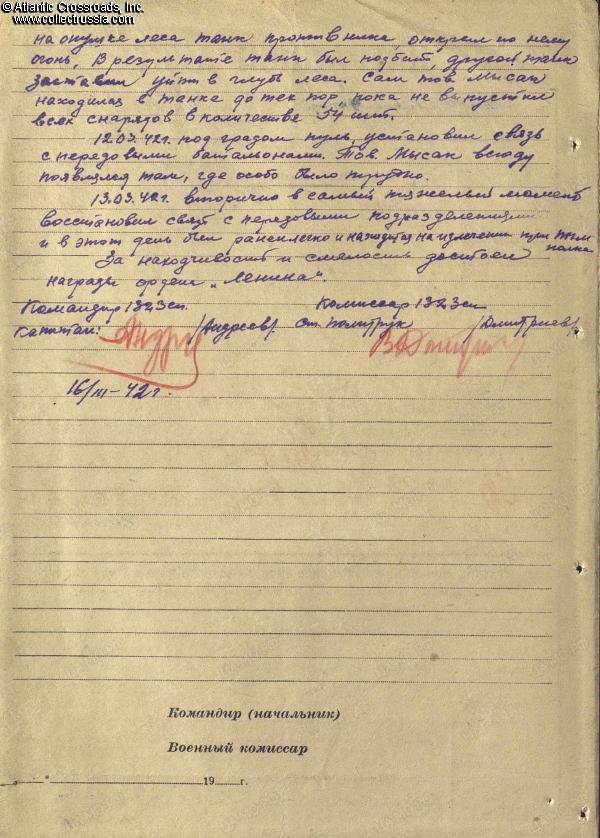 © Atlantic Crossroads, Inc.
www.collectrussia.com
на опушке леса танк противника, открыл по нему
огонь. В результате танк был подбит, другой танк
заставил уйти в глубь леса. Сам тов. Мысак
находился в танке до тех пор, пока не выпустил
всех снарядов в количестве 54 шт.
12.03.42г. под градом пуль, установил связь
с передовыми батальонами. Тов. Мысак всюду
появлялся там, где особо было трудно.
13.03.42г. вторично в самый тяжелый момент
восстановил связь с передовыми подразделениями
и в этот день был ранен легко и находится на излечении при
полка
За находчивость и смелость достоен
награды орден "Ленина".
Командир 1323сп. Комиссар 1323сп
капитан: /Андреев/ ст. политрук /Дмитриев/
16/III-42г.
Командир (начальник)
Военный комиссар
" " 19 г.